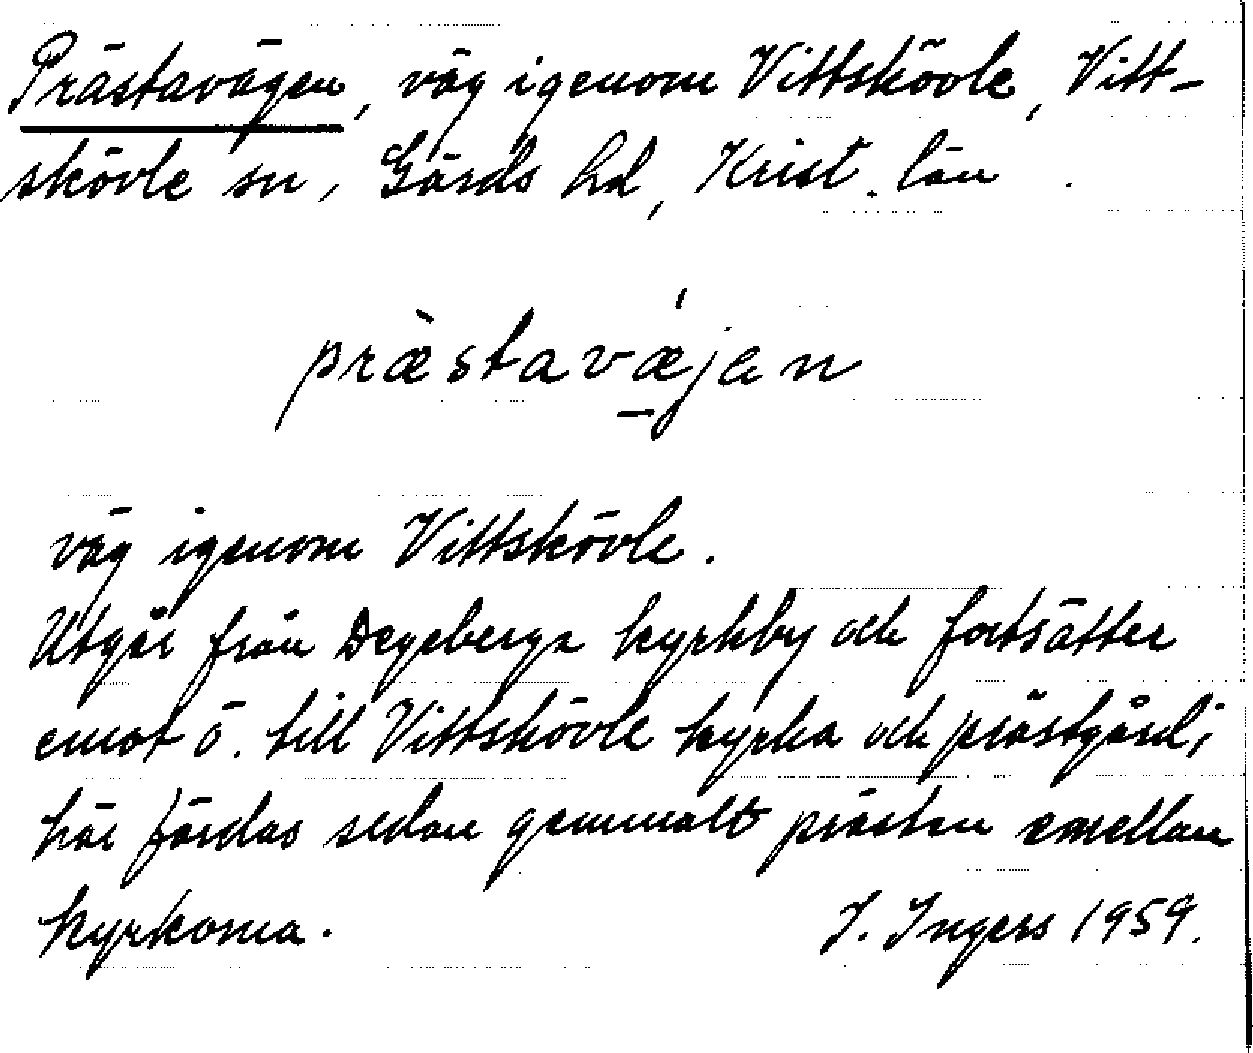 Prästavägen, väg igenom Vittskövle, Vitt-
skövle sn, Gärds hd, Krist. län.
præ̀stavǽjan
väg igenom Vittskövle.
Utgår från Degeberga kyrkby och fortsätter
emot ö. till Vittskövle kyrka och prästgård;
här färdas sedan gammalt prästen emellan
kyrkorna. I. Ingers 1959.